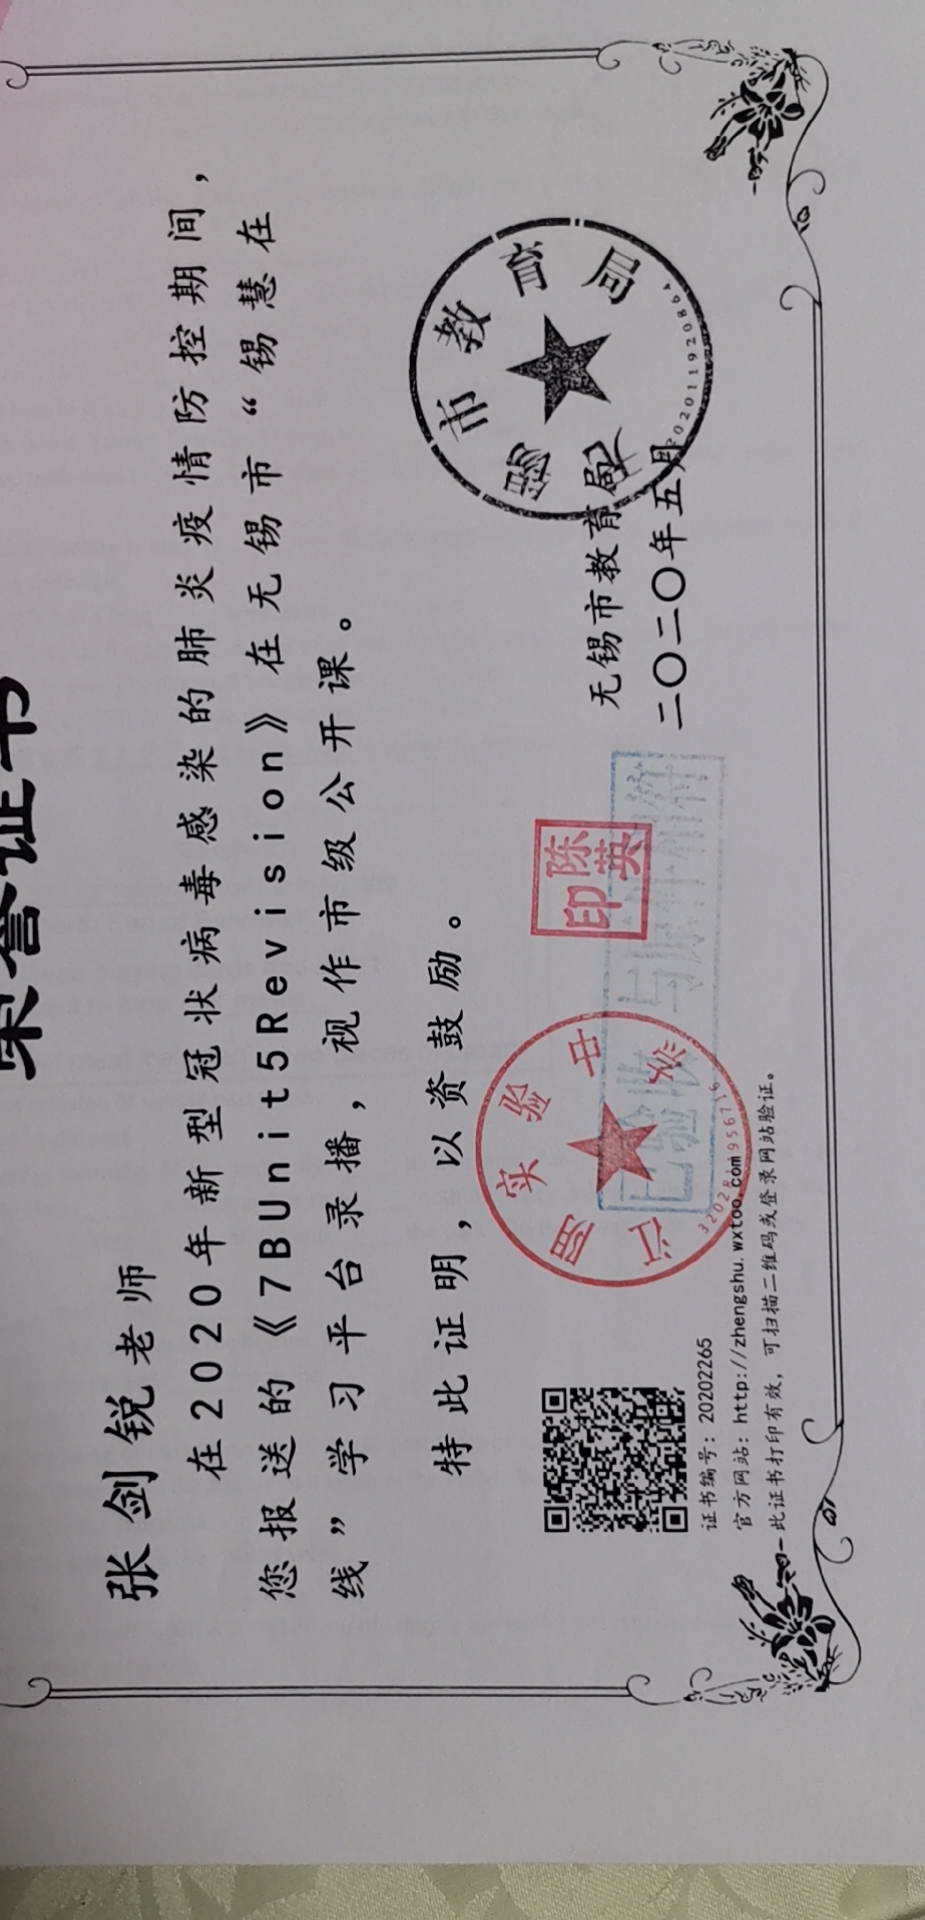 荣誉证书
张剑锐老师
在2020年新型冠状病毒感染的肺炎疫情防控期间，
您报送的《7BUnit5Revision》在无锡市“锡慧在
线”学习平台录播，视作市级公开课。
特此证明，以资鼓励。
无锡市教育局
二〇二〇年五月
市教育局
陈英印
实验
已验收与原件相符
证书编号：20202265
官方网站：http://zhengshu.wxtoo.com
此证书打印有效，可扫描二维码或登录网站验证。